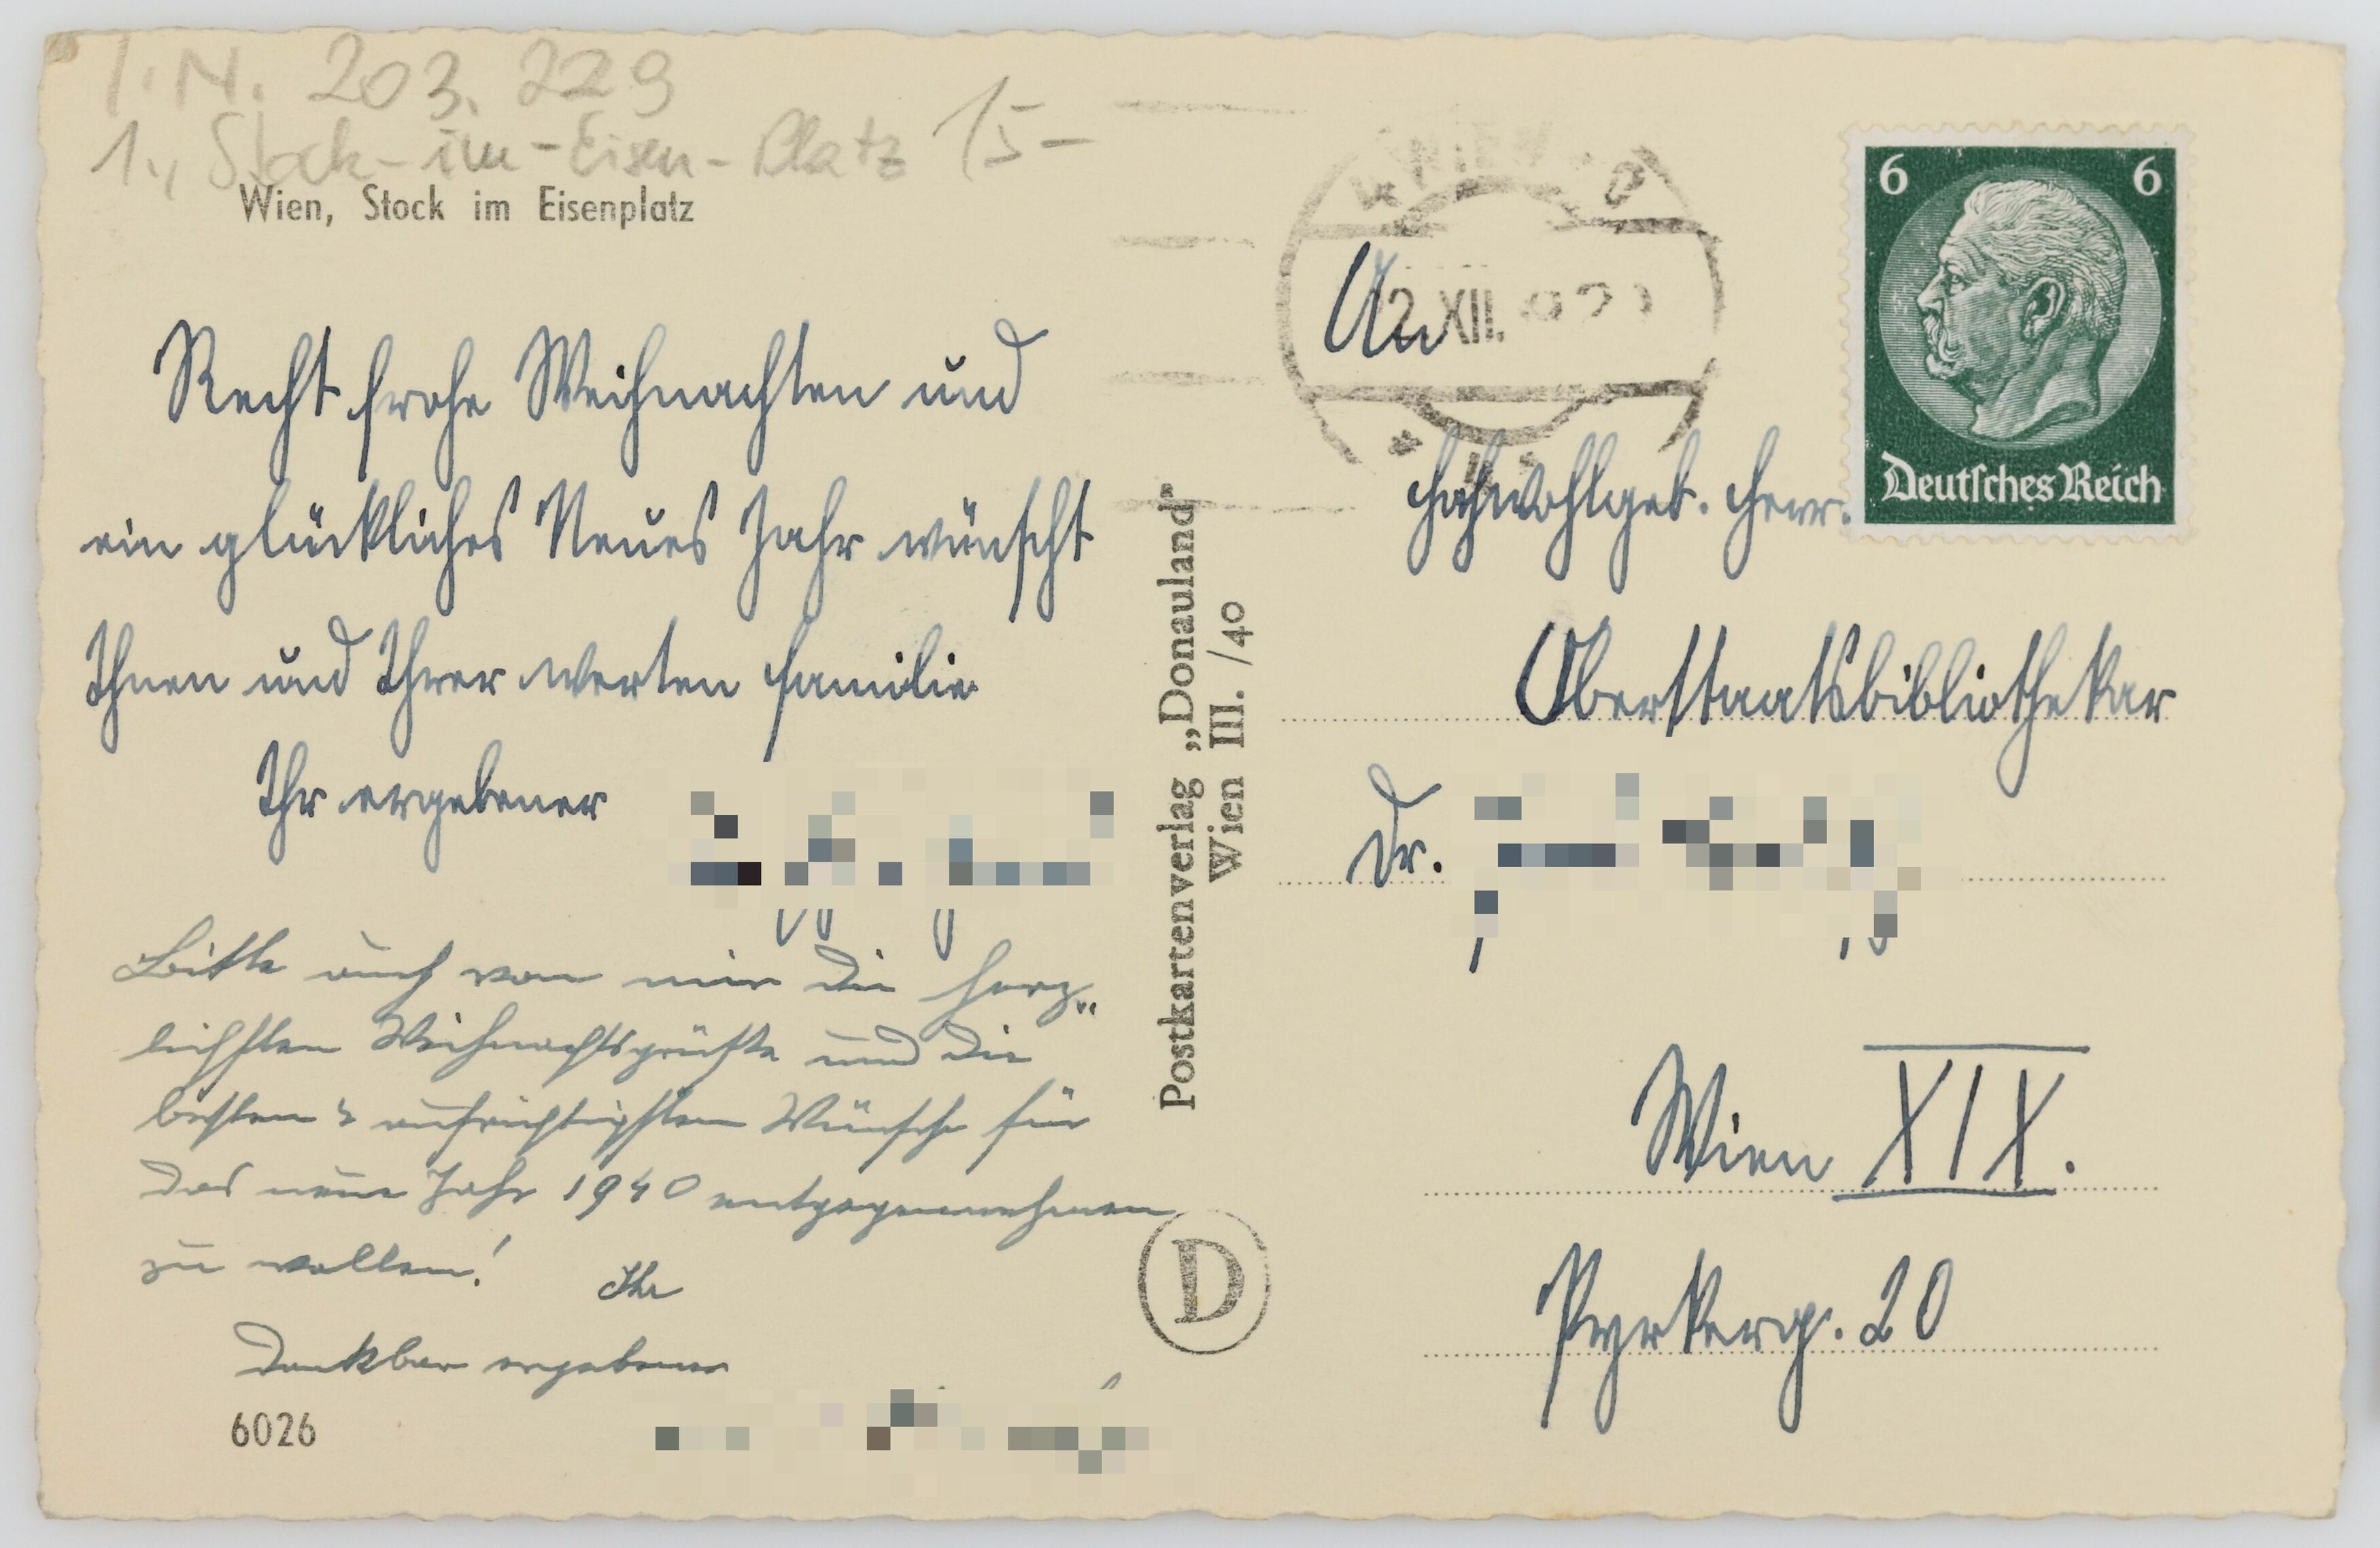 I.N. 203.229
1., Stock-im-Eisen-Platz 15-
Wien, Stock im Eisenplatz
Recht frohe Weihnachten und
ein glückliches Neues Jahr wünscht
Ihnen und Ihrer werten Familie
Ihr ergebener
Bitte auch von mir die herz-
lichsten Weihnachtsgrüße und die
besten & aufrichtigsten Wünsche für
das neue Jahr 1940 entgegennehmen
zu wollen! Ihr
dankbar ergebener
6026
Postkartenverlag „Donauland"
Wien III. /40
D
XII.
6 6
Deutsches Reich
An
Hochwohlgeb. Herr.
Oberstaatsbibliothekar
Dr.
Wien XIX.
Pyrkerg. 20